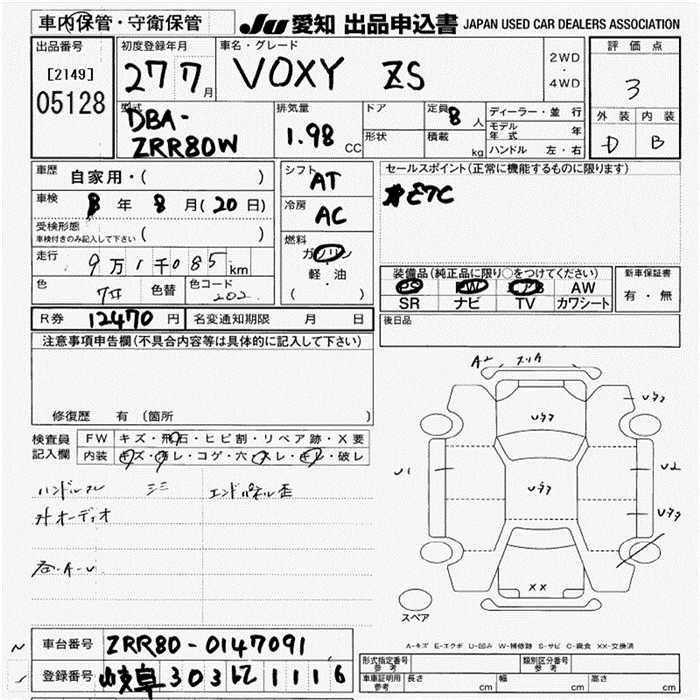 車内保管・守衛保管
JU 愛知 出品申込書 JAPAN USED CAR DEALERS ASSOCIATION
出品番号
[2149]
05128
初度登録年月
27 7月
車名・グレード
VOXY ZS
2WD
・
4WD
評価点
3
外装 内装
D B
型式
DBA-
ZRR80W
排気量
1.98 CC
ドア
形状
定員 8 人
積載 kg
ディーラー・並行
モデル年式 年
ハンドル 左・右
車歴 自家用・( )
車検 8年 8月(20日)
受検形態
車検付きのみ記入して下さい ( )
走行 9万1千085 km
色 色替 色コード 202
シフト AT
冷房 AC
燃料
ガソリン
・
軽・油
( )
セールスポイント(正常に機能するものに限ります)
ETC
装備品(純正品に限り○をつけてください)
PS PW エアB AW
SR ナビ TV カワシート
新車保証書
有・無
R券 12470円 名変通知期限 月 日
後日品
注意事項申告欄(不具合内容等は具体的に記入して下さい)
修復歴 有 (箇所
検査員記入欄
FW キズ・飛石・ヒビ割・リペア跡・X要
内装 キズ・汚レ・コゲ・穴・スレ・キレ・破レ
ハンドルスレ シミ エンドパネル歪
外オーディオ
A2 スリA
Uヲヲ
Uヲヲ
U1
U2
Uヲヲ
Uヲヲ
XX
スペア
A-キズ E-エクボ U-凹み W-補修跡 S-サビ C-腐食 XX-交換済
車台番号 ZRR80-0147091
登録番号 岐阜 303 ひ 1116
形式指定番号 参考
類別区分番号 参考
車庫証明用 参考 長さ cm 幅 cm 高さ cm